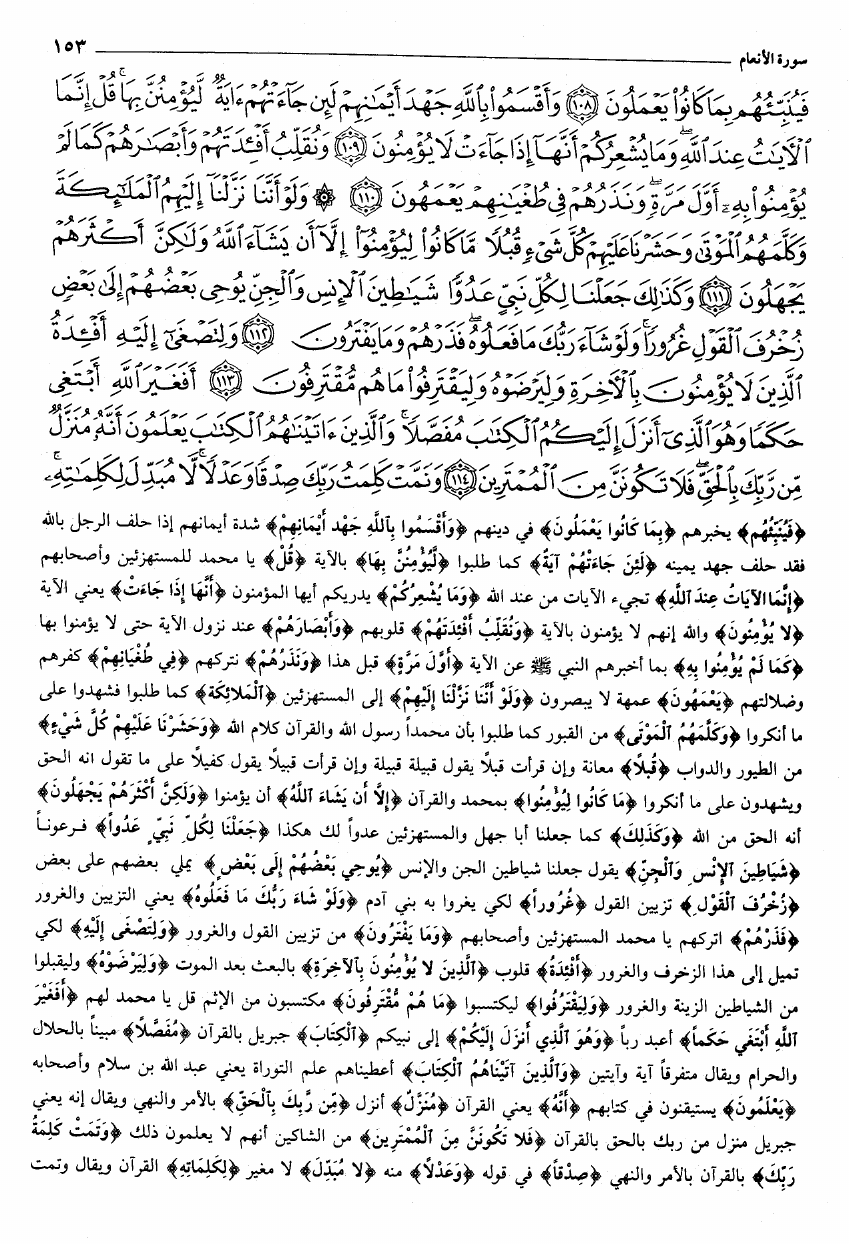 سورة الأنعام ١٥٣
فَيُنَبِّئُهُم بِمَا كَانُوا۟ يَعْمَلُونَ ١٠٨ وَأَقْسَمُوا۟ بِٱللَّهِ جَهْدَ أَيْمَٰنِهِمْ لَئِن جَآءَتْهُمْ ءَايَةٌ لَّيُؤْمِنُنَّ بِهَا ۚ قُلْ إِنَّمَا
ٱلْءَايَٰتُ عِندَ ٱللَّهِ ۖ وَمَا يُشْعِرُكُمْ أَنَّهَآ إِذَا جَآءَتْ لَا يُؤْمِنُونَ ١٠٩ وَنُقَلِّبُ أَفْـِٔدَتَهُمْ وَأَبْصَٰرَهُمْ كَمَا لَمْ
يُؤْمِنُوا۟ بِهِۦٓ أَوَّلَ مَرَّةٍ وَنَذَرُهُمْ فِى طُغْيَٰنِهِمْ يَعْمَهُونَ ١١٠ ۞ وَلَوْ أَنَّنَا نَزَّلْنَآ إِلَيْهِمُ ٱلْمَلَٰٓئِكَةَ
وَكَلَّمَهُمُ ٱلْمَوْتَىٰ وَحَشَرْنَا عَلَيْهِمْ كُلَّ شَىْءٍ قُبُلًا مَّا كَانُوا۟ لِيُؤْمِنُوٓا۟ إِلَّآ أَن يَشَآءَ ٱللَّهُ وَلَٰكِنَّ أَكْثَرَهُمْ
يَجْهَلُونَ ١١١ وَكَذَٰلِكَ جَعَلْنَا لِكُلِّ نَبِىٍّ عَدُوًّا شَيَٰطِينَ ٱلْإِنسِ وَٱلْجِنِّ يُوحِى بَعْضُهُمْ إِلَىٰ بَعْضٍ
زُخْرُفَ ٱلْقَوْلِ غُرُورًا ۚ وَلَوْ شَآءَ رَبُّكَ مَا فَعَلُوهُ ۖ فَذَرْهُمْ وَمَا يَفْتَرُونَ ١١٢ وَلِتَصْغَىٰٓ إِلَيْهِ أَفْـِٔدَةُ
ٱلَّذِينَ لَا يُؤْمِنُونَ بِٱلْءَاخِرَةِ وَلِيَرْضَوْهُ وَلِيَقْتَرِفُوا۟ مَا هُم مُّقْتَرِفُونَ ١١٣ أَفَغَيْرَ ٱللَّهِ أَبْتَغِى
حَكَمًا وَهُوَ ٱلَّذِىٓ أَنزَلَ إِلَيْكُمُ ٱلْكِتَٰبَ مُفَصَّلًا ۚ وَٱلَّذِينَ ءَاتَيْنَٰهُمُ ٱلْكِتَٰبَ يَعْلَمُونَ أَنَّهُۥ مُنَزَّلٌ
مِّن رَّبِّكَ بِٱلْحَقِّ ۖ فَلَا تَكُونَنَّ مِنَ ٱلْمُمْتَرِينَ ١١٤ وَتَمَّتْ كَلِمَتُ رَبِّكَ صِدْقًا وَعَدْلًا ۚ لَّا مُبَدِّلَ لِكَلِمَٰتِهِۦ ۚ
﴿فَيُنَبِّئُهُم﴾ يخبرهم ﴿بِمَا كَانُوا يَعْمَلُونَ﴾ في دينهم ﴿وَأَقْسَمُوا بِٱللَّهِ جَهْدَ أَيْمَانِهِمْ﴾ شدة أيمانهم إذا حلف الرجل بالله
فقد حلف جهد يمينه ﴿لَئِن جَاءَتْهُمْ آيَةٌ﴾ كما طلبوا ﴿لَّيُؤْمِنُنَّ بِهَا﴾ بالآية ﴿قُلْ﴾ يا محمد للمستهزئين وأصحابهم
﴿إِنَّمَا الآيَاتُ عِندَ ٱللَّهِ﴾ تجيء الآيات من عند الله ﴿وَمَا يُشْعِرُكُمْ﴾ يدريكم أيها المؤمنون ﴿أَنَّهَا إِذَا جَاءَتْ﴾ يعني الآية
﴿لا يُؤْمِنُونَ﴾ والله إنهم لا يؤمنون بالآية ﴿وَنُقَلِّبُ أَفْئِدَتَهُمْ﴾ قلوبهم ﴿وَأَبْصَارَهُمْ﴾ عند نزول الآية حتى لا يؤمنوا بها
﴿كَمَا لَمْ يُؤْمِنُوا بِهِ﴾ بما أخبرهم النبي ﷺ عن الآية ﴿أَوَّلَ مَرَّةٍ﴾ قبل هذا ﴿وَنَذَرُهُمْ﴾ نتركهم ﴿فِي طُغْيَانِهِمْ﴾ كفرهم
وضلالتهم ﴿يَعْمَهُونَ﴾ عمهة لا يبصرون ﴿وَلَوْ أَنَّنَا نَزَّلْنَا إِلَيْهِمُ﴾ إلى المستهزئين ﴿ٱلْمَلائِكَةَ﴾ كما طلبوا فشهدوا على
ما أنكروا ﴿وَكَلَّمَهُمُ ٱلْمَوْتَى﴾ من القبور كما طلبوا بأن محمداً رسول الله والقرآن كلام الله ﴿وَحَشَرْنَا عَلَيْهِمْ كُلَّ شَيْءٍ﴾
من الطيور والدواب ﴿قُبُلاً﴾ معانة وإن قرأت قبلاً يقول قبيلة قبيلة وإن قرأت قبيلاً يقول كفيلاً على ما تقول انه الحق
ويشهدون على ما أنكروا ﴿مَا كَانُوا لِيُؤْمِنُوا﴾ بمحمد والقرآن ﴿إِلَّا أَن يَشَاءَ ٱللَّهُ﴾ أن يؤمنوا ﴿وَلَكِنَّ أَكْثَرَهُمْ يَجْهَلُونَ﴾
أنه الحق من الله ﴿وَكَذَلِكَ﴾ كما جعلنا أبا جهل والمستهزئين عدواً لك هكذا ﴿جَعَلْنَا لِكُلِّ نَبِيٍّ عَدُوّاً﴾ فرعوناً
﴿شَيَاطِينَ ٱلإِنْسِ وَٱلْجِنِّ﴾ يقول جعلنا شياطين الجن والإنس ﴿يُوحِي بَعْضُهُمْ إِلَى بَعْضٍ﴾ يملي بعضهم على بعض
﴿زُخْرُفَ ٱلْقَوْلِ﴾ تزيين القول ﴿غُرُوراً﴾ لكي يغروا به بني آدم ﴿وَلَوْ شَاءَ رَبُّكَ مَا فَعَلُوهُ﴾ يعني التزيين والغرور
﴿فَذَرْهُمْ﴾ اتركهم يا محمد المستهزئين وأصحابهم ﴿وَمَا يَفْتَرُونَ﴾ من تزيين القول والغرور ﴿وَلِتَصْغَى إِلَيْهِ﴾ لكي
تميل إلى هذا الزخرف والغرور ﴿أَفْئِدَةُ﴾ قلوب ﴿ٱلَّذِينَ لا يُؤْمِنُونَ بِٱلآخِرَةِ﴾ بالبعث بعد الموت ﴿وَلِيَرْضَوْهُ﴾ وليقبلوا
من الشياطين الزينة والغرور ﴿وَلِيَقْتَرِفُوا﴾ ليكتسبوا ﴿مَا هُمْ مُّقْتَرِفُونَ﴾ مكتسبون من الإثم قل يا محمد لهم ﴿أَفَغَيْرَ
ٱللَّهِ أَبْتَغِي حَكَماً﴾ أعبد رباً ﴿وَهُوَ ٱلَّذِي أَنزَلَ إِلَيْكُمُ﴾ إلى نبيكم ﴿ٱلْكِتَابَ﴾ جبريل بالقرآن ﴿مُفَصَّلاً﴾ مبيناً بالحلال
والحرام ويقال متفرقاً آية وآيتين ﴿وَٱلَّذِينَ آتَيْنَاهُمُ ٱلْكِتَابَ﴾ أعطيناهم علم التوراة يعني عبد الله بن سلام وأصحابه
﴿يَعْلَمُونَ﴾ يستيقنون في كتابهم ﴿أَنَّهُ﴾ يعني القرآن ﴿مُنَزَّلٌ﴾ أنزل ﴿مِّن رَّبِّكَ بِٱلْحَقِّ﴾ بالأمر والنهي ويقال إنه يعني
جبريل منزل من ربك بالحق بالقرآن ﴿فَلا تَكُونَنَّ مِنَ ٱلْمُمْتَرِينَ﴾ من الشاكين أنهم لا يعلمون ذلك ﴿وَتَمَّتْ كَلِمَةُ
رَبِّكَ﴾ بالقرآن بالأمر والنهي ﴿صِدْقاً﴾ في قوله ﴿وَعَدْلاً﴾ منه ﴿لا مُبَدِّلَ﴾ لا مغير ﴿لِكَلِمَاتِهِ﴾ القرآن ويقال وتمت